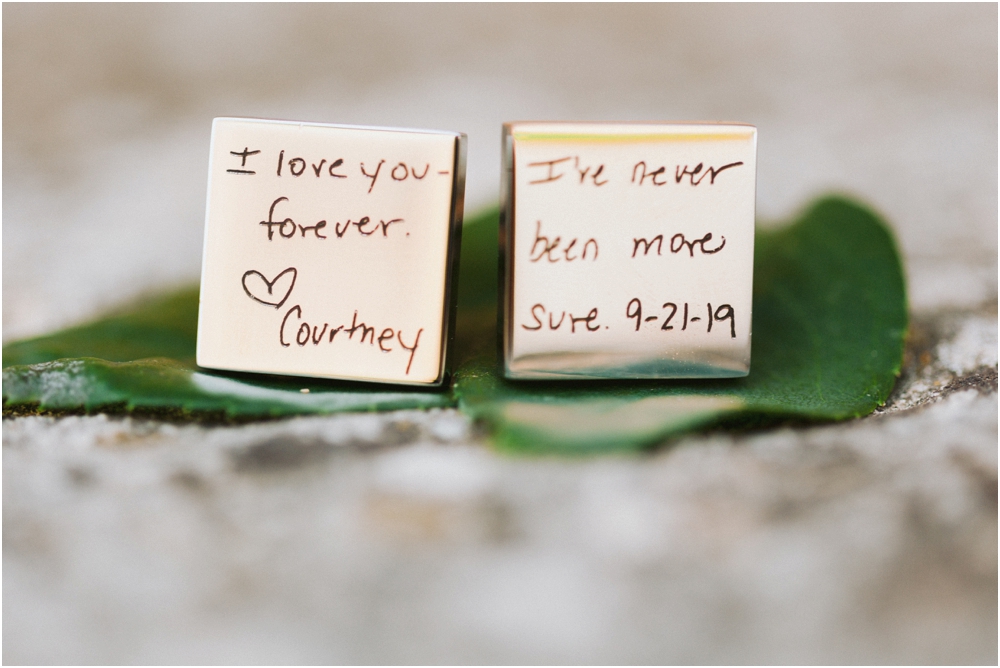 I love you-
forever.
♡
Courtney
I've never
been more
sure. 9-21-19